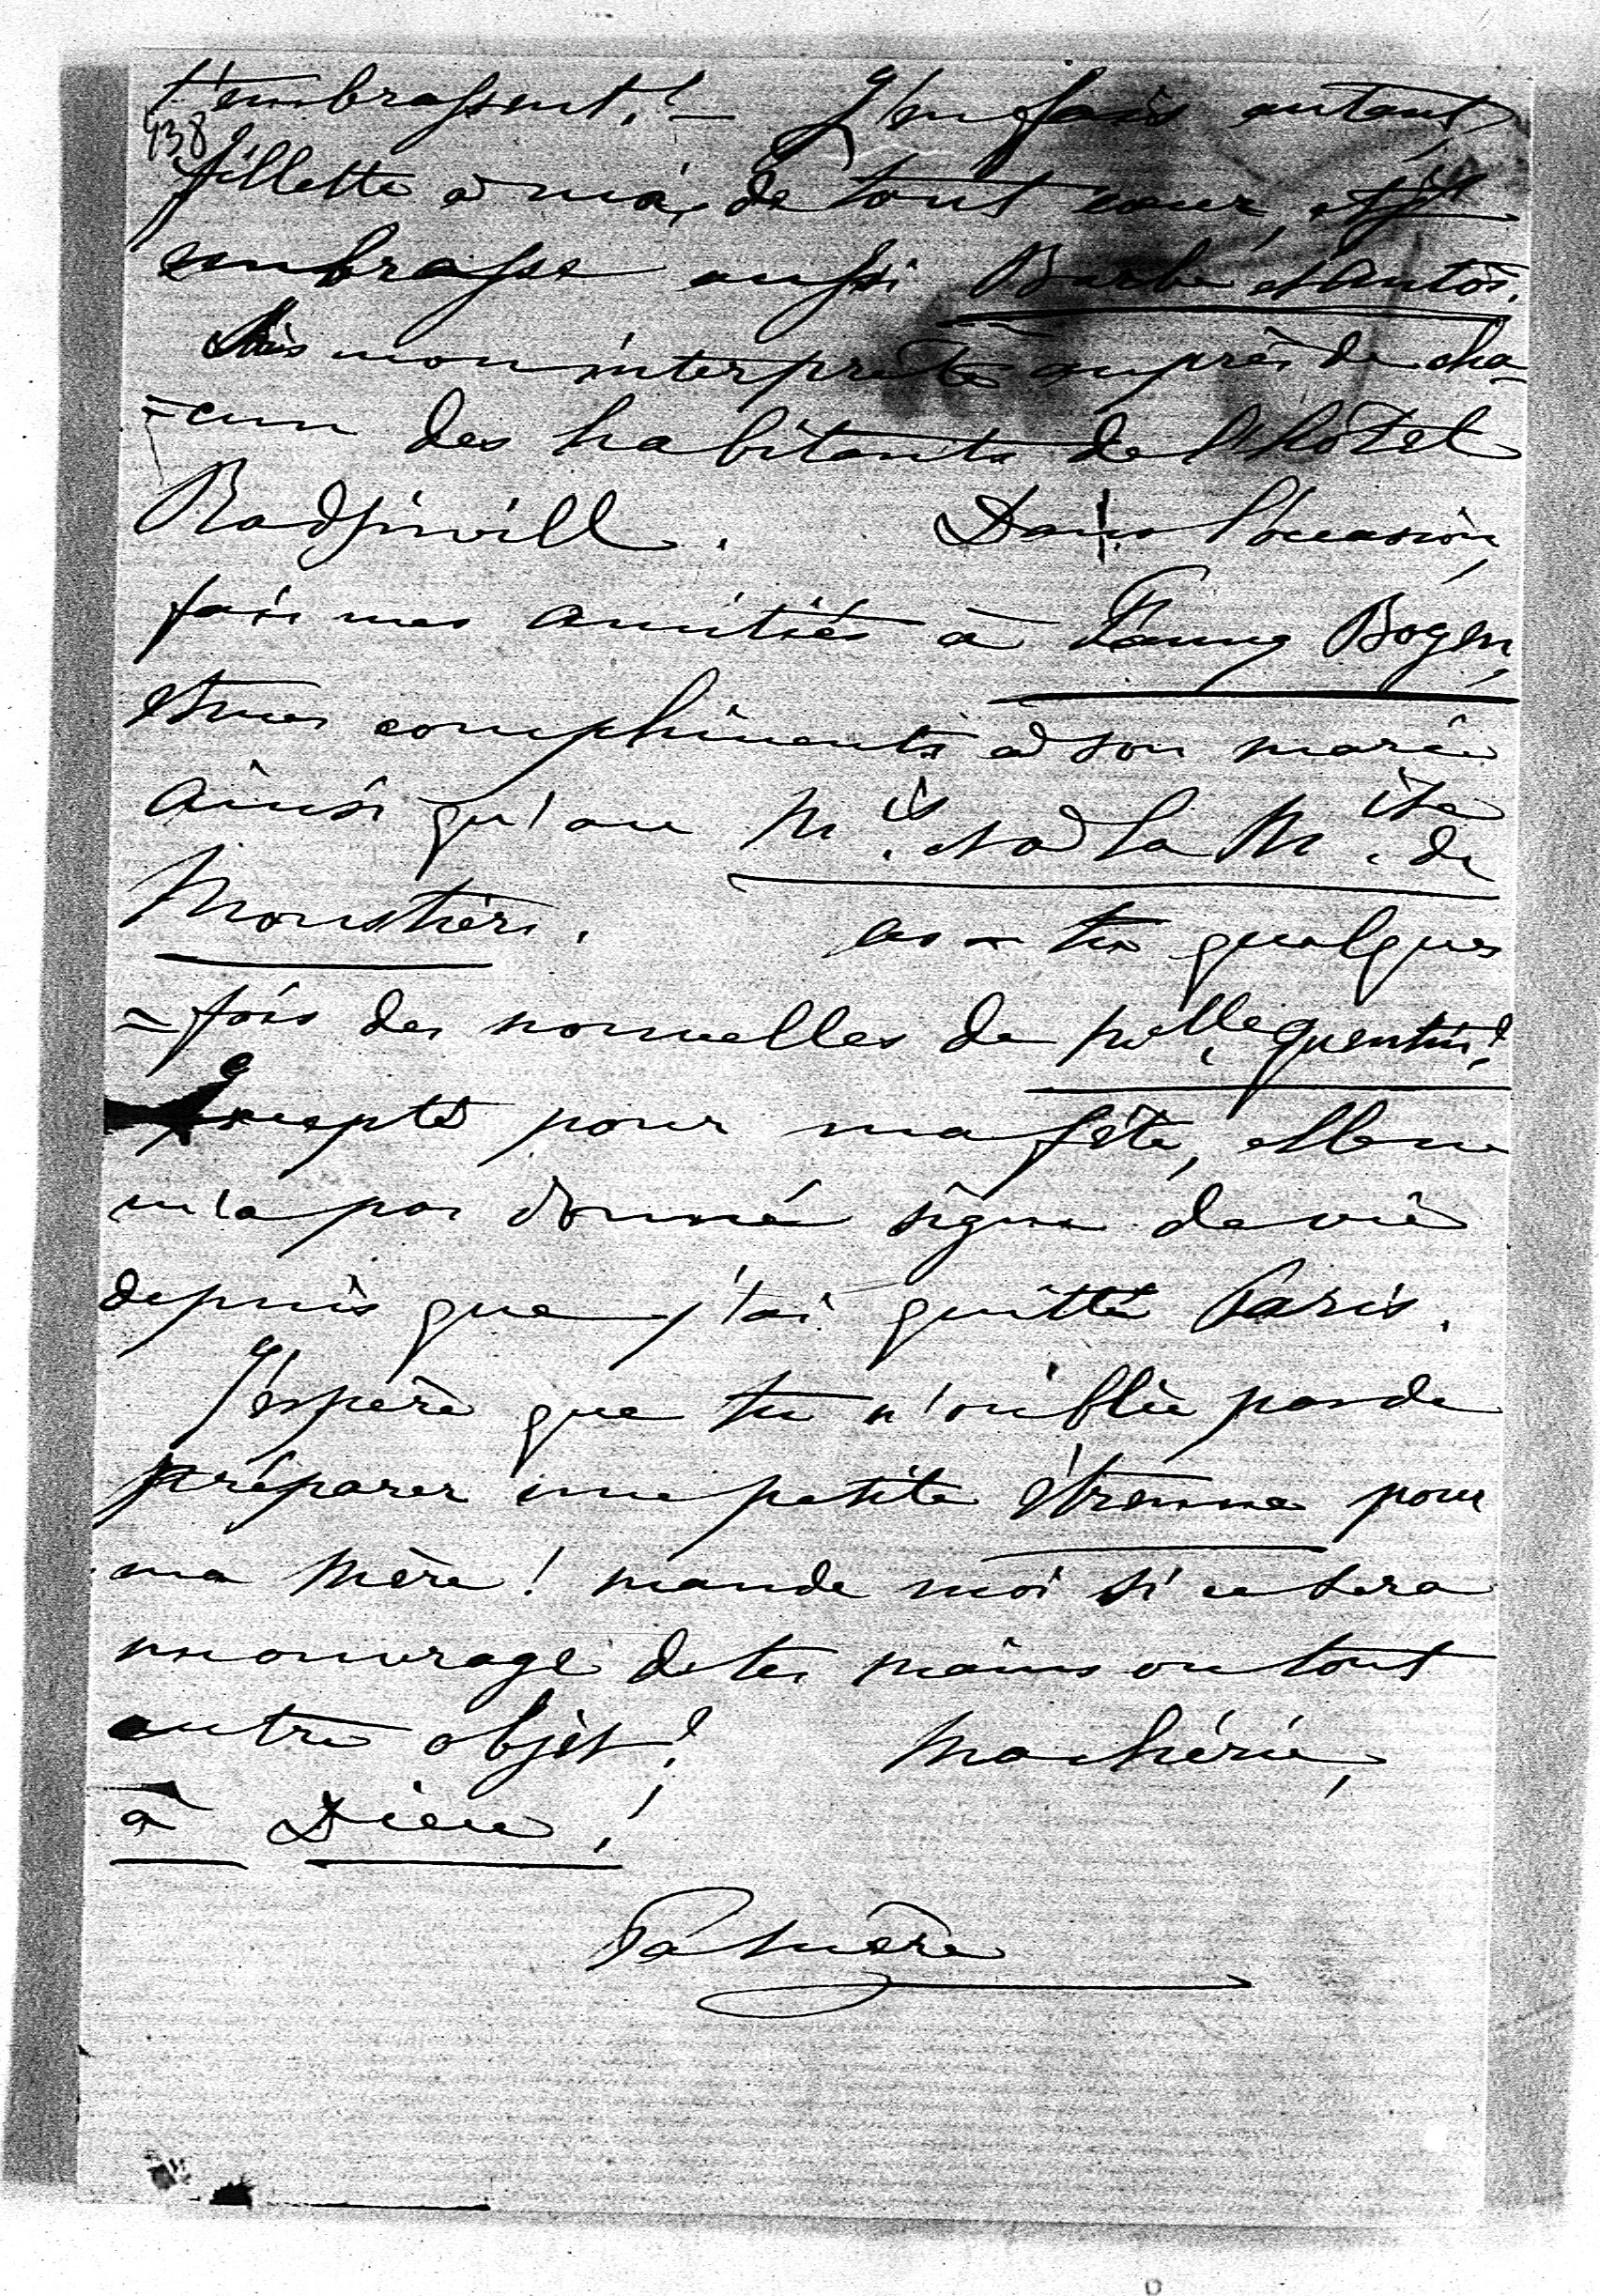 t'embrassent! — J'en fais autant,
938
fillette à moi, de tout cœur, et j'
embrasse aussi Barbe et Antò.
Sois mon interprête auprès de cha-
=cun des habitants de l'hôtel
Radziwill. Dans l'occasion,
fais mes amitiés à Fanny Bogen,
et mes compliments à son marie
ainsi qu'au M.is et à la M.ise de
Moustiers. as-tu quelques
=fois des nouvelles de Melle. Quentin?
Excepté pour ma fête, elle ne
m'a pas donné signe de vie
depuis que j'ai quitté Paris.
J'espère que tu n'oublie pas de
préparer une petite étrenne pour
ma Mère! mande moi si ce sera
un ouvrage de tes mains ou tout
autre objet? Ma chérie,
à Dieu!
Ta mère